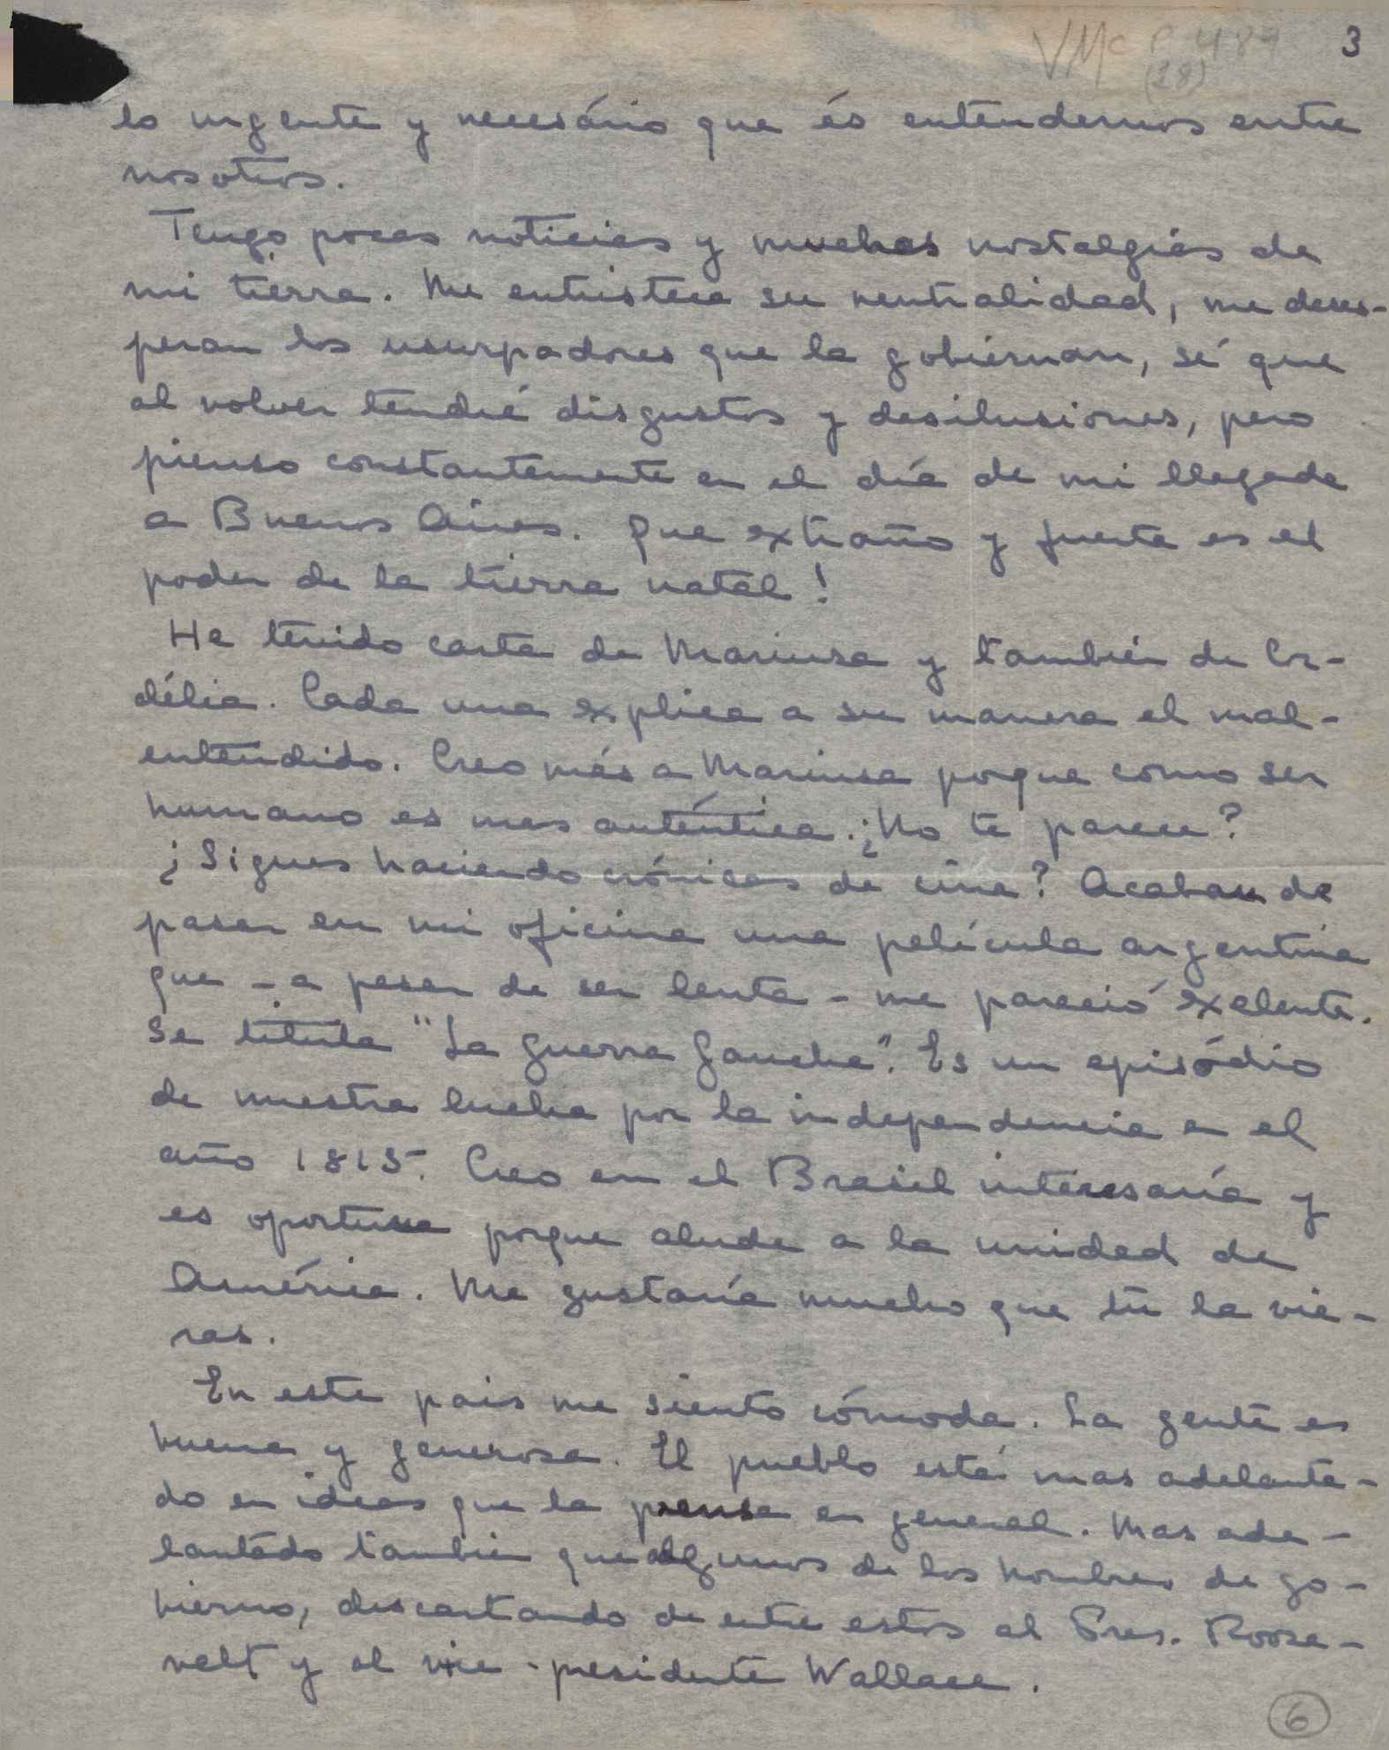 VMc P 489 3
(28)
lo urgente y necesário que és entendernos entre
nosotros.
Tengo pocas noticias y muchas nostalgias de
mi tierra. Me entristece su neutralidad, me deses-
peran los usurpadores que la gobiernan, sé que
al volver tendré disgustos y desilusiones, pero
pienso constantemente en el día de mi llegada
a Buenos Aires. Que extraño y fuerte es el
poder de la tierra natal!
He tenido carta de Mariusa y también de Cor-
délia. Cada una explica a su manera el mal-
entendido. Creo más a Mariusa porque como ser
humano es mas auténtica. ¿No te parece?
¿Sigues haciendo crónicas de cine? Acaban de
pasar en mi oficina una película argentina
que - a pesar de ser lenta - me pareció exelente.
Se titula "La guerra gaucha". Es un episódio
de nuestra lucha por la independencia en el
año 1815. Creo en el Brasil interesaría y
es oportuna porque alude a la unidad de
América. Me gustaría mucho que tú la vie-
ras.
En este pais me siento cómoda. La gente es
buena y generosa. El pueblo está mas adelanta-
do en ideas que la prensa en general. Mas ade-
lantado también que algunos de los hombres de go-
bierno, descartando de entre estos al Pres. Roose-
velt y al vice-presidente Wallace.
6